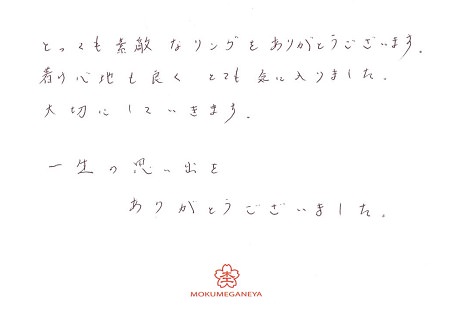 とっても素敵なリングをありがとうございます。
着け心地も良く とても気に入りました。
大切にしていきます。
一生の思い出を
ありがとうございました。
MOKUMEGANEYA